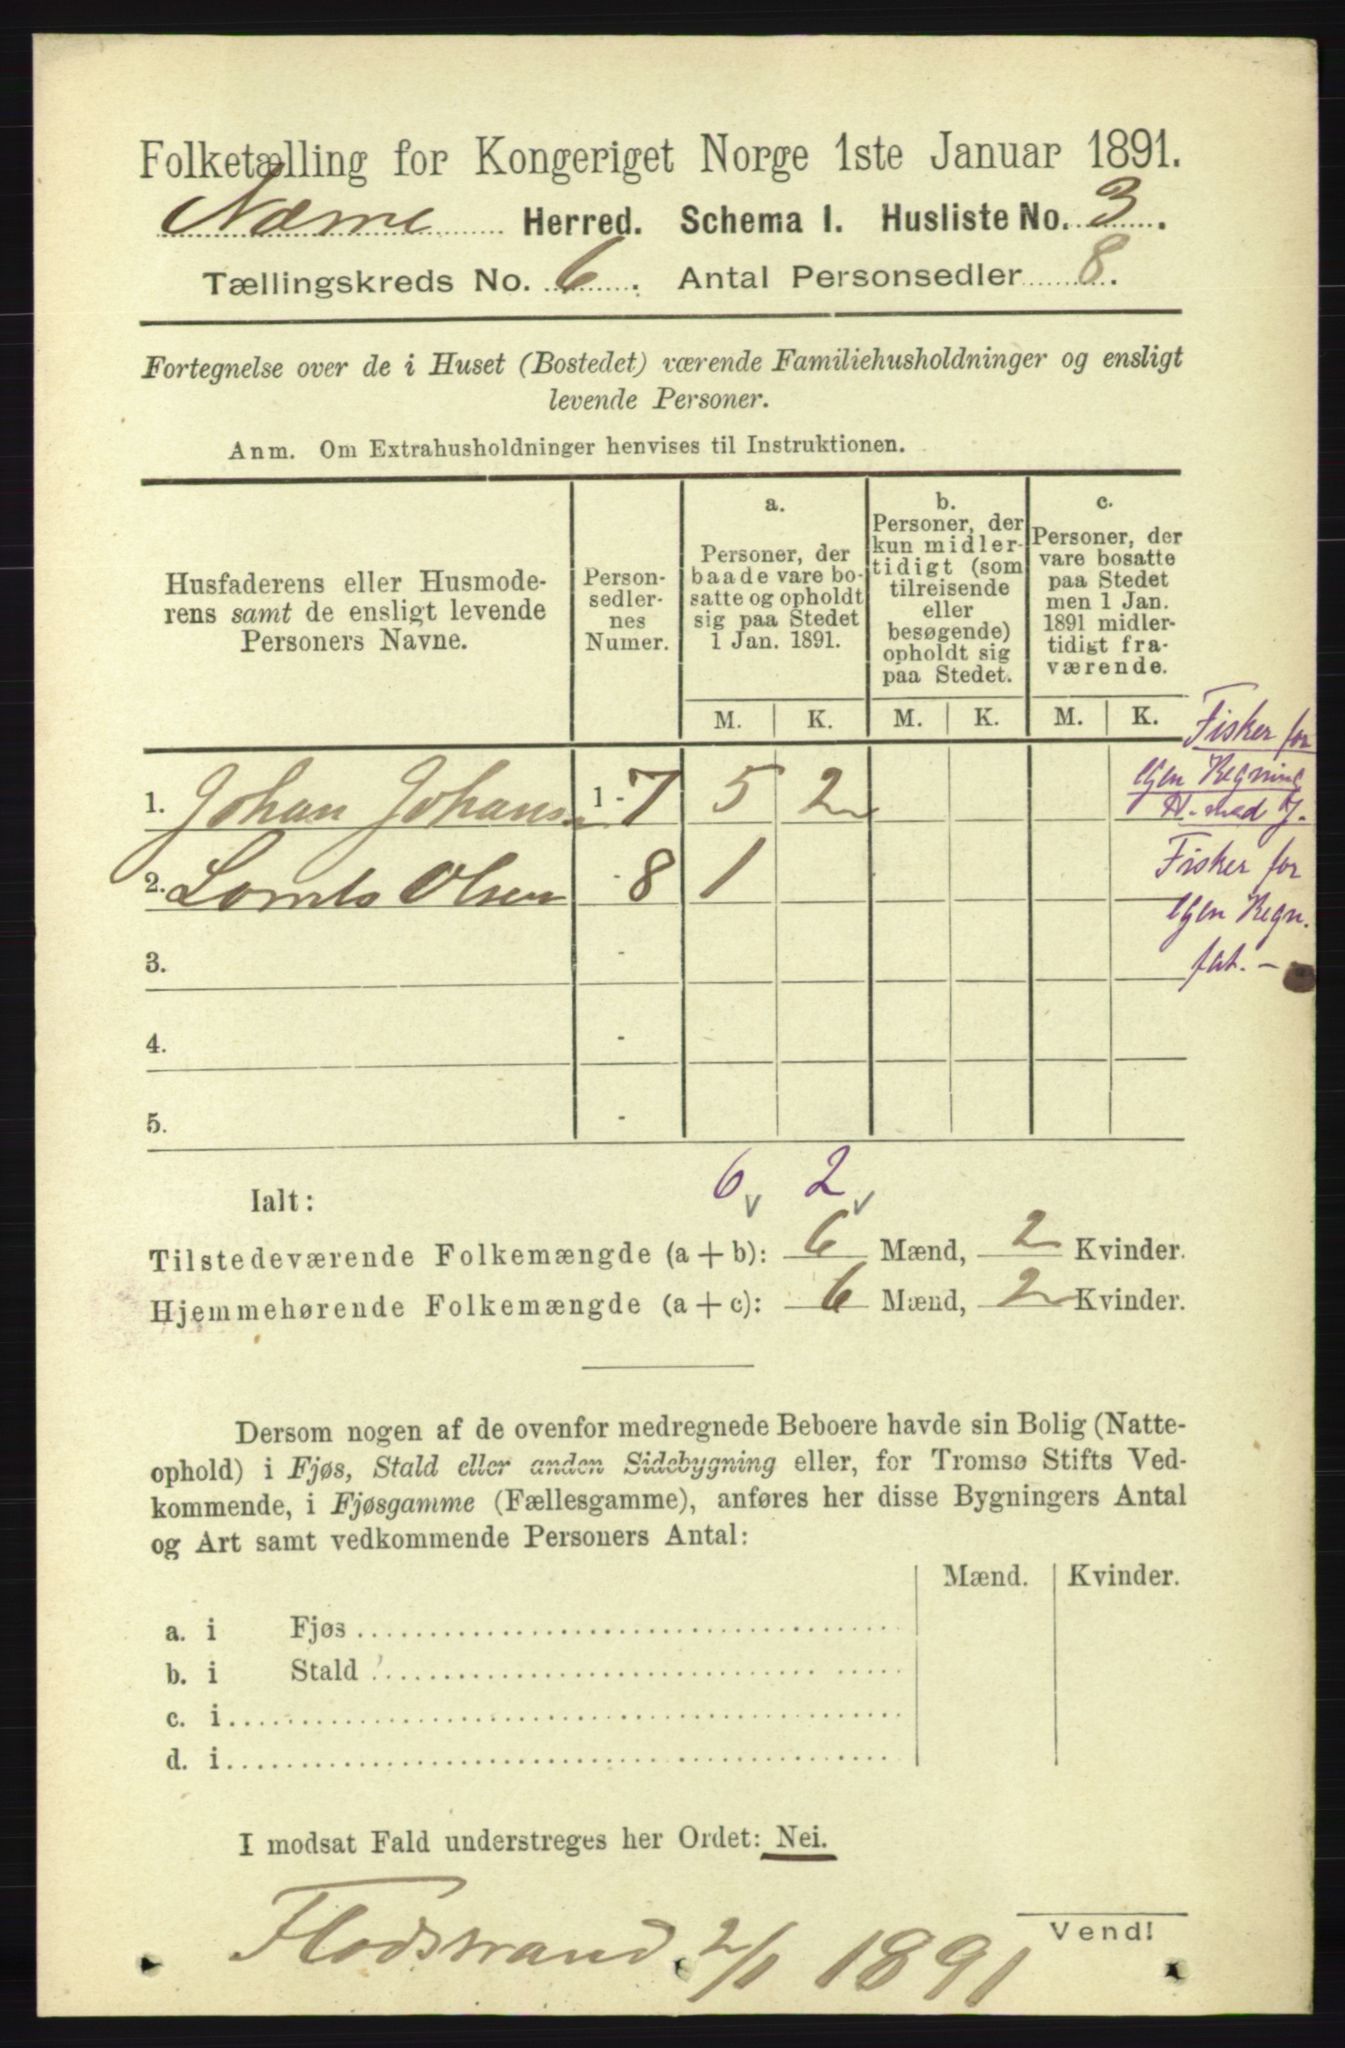 Folketælling for Kongeriget Norge 1ste Januar 1891.
Herred. Schema I. Husliste No. 3.
Tællingskreds No. 6. Antal Personsedler 8.
Fortegnelse over de i Huset (Bostedet) værende Familiehusholdninger og ensligt
levende Personer.
Anm. Om Extrahusholdninger henvises til Instruktionen.
Husfaderens eller Husmode-
rens samt de ensligt levende
Personers Navne.
Person-
sedler-
nes
Numer.
a.
Personer, der
baade vare bo-
satte og opholdt
sig paa Stedet
1 Jan. 1891.
b.
Personer, der
kun midler-
tidigt (som
tilreisende
eller
besøgende)
opholdt sig
paa Stedet.
c.
Personer, der
vare bosatte
paa Stedet
men 1 Jan.
1891 midler-
tidigt fra-
værende.
M. K. M. K. M. K.
Fisker for
Egen Regning
1. Johan Johans 1-7 5 2
2. Olsen -8 1
Fisker for
Egen Regn.
3. -
4. -
5. -
6 v 2 v
Ialt:
Tilstedeværende Folkemængde (a + b): 6 Mænd, 2 Kvinder.
Hjemmehørende Folkemængde (a + c): 6 Mænd, 2 Kvinder.
Dersom nogen af de ovenfor medregnede Beboere havde sin Bolig (Natte-
ophold) i Fjøs, Stald eller anden Sidebygning eller, for Tromsø Stifts Ved-
kommende, i Fjøsgamme (Fællesgamme), anføres her disse Bygningers Antal
og Art samt vedkommende Personers Antal:
Mænd. Kvinder.
a. i Fjøs
b. i Stald
c. i
d. i
I modsat Fald understreges her Ordet: Nei.
Flodstrand 2/1 1891
Vend!